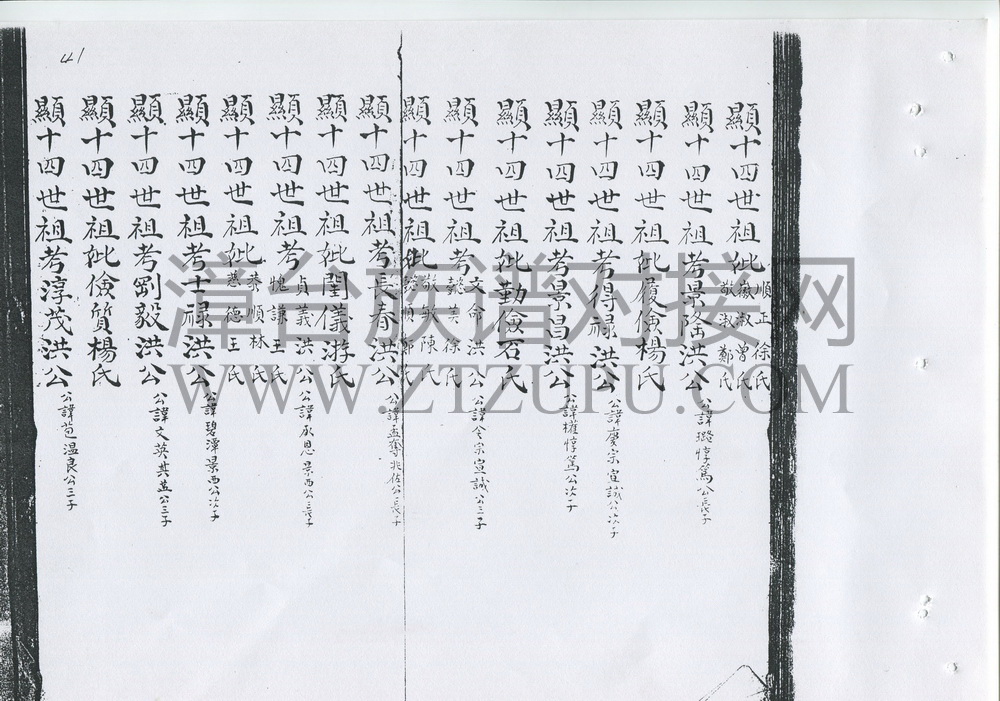 顯十四世祖妣順正徐氏
徽淑曾氏
敬淑鄭氏
顯十四世祖考景隆洪公 公諱璐惇篤公長子
顯十四世祖妣履儉楊氏
顯十四世祖考得禄洪公 公諱慶宗宣誠公次子
顯十四世祖考景昌洪公 公諱權惇篤公次子
顯十四世祖妣勤儉石氏
顯十四世祖考文命洪公 公諱令宗宣誠公三子
懿美徐氏
顯十四世祖妣敬敏陳氏
慈順鄭氏
顯十四世祖考長春洪公 公諱孟兆佐公長子
顯十四世祖妣閨儀游氏
顯十四世祖考貞義洪公 公諱承恩景西公長子
愧謙王氏
顯十四世祖妣恭順林氏
慈德王氏
顯十四世祖考士禄洪公 公諱碧潭景西公次子
顯十四世祖考剛毅洪公 公諱文英其益公三子
顯十四世祖妣儉質楊氏
顯十四世祖考淳茂洪公 公諱苞温良公三子
41
漳台族谱对接网
WWW.ZTZUPU.COM